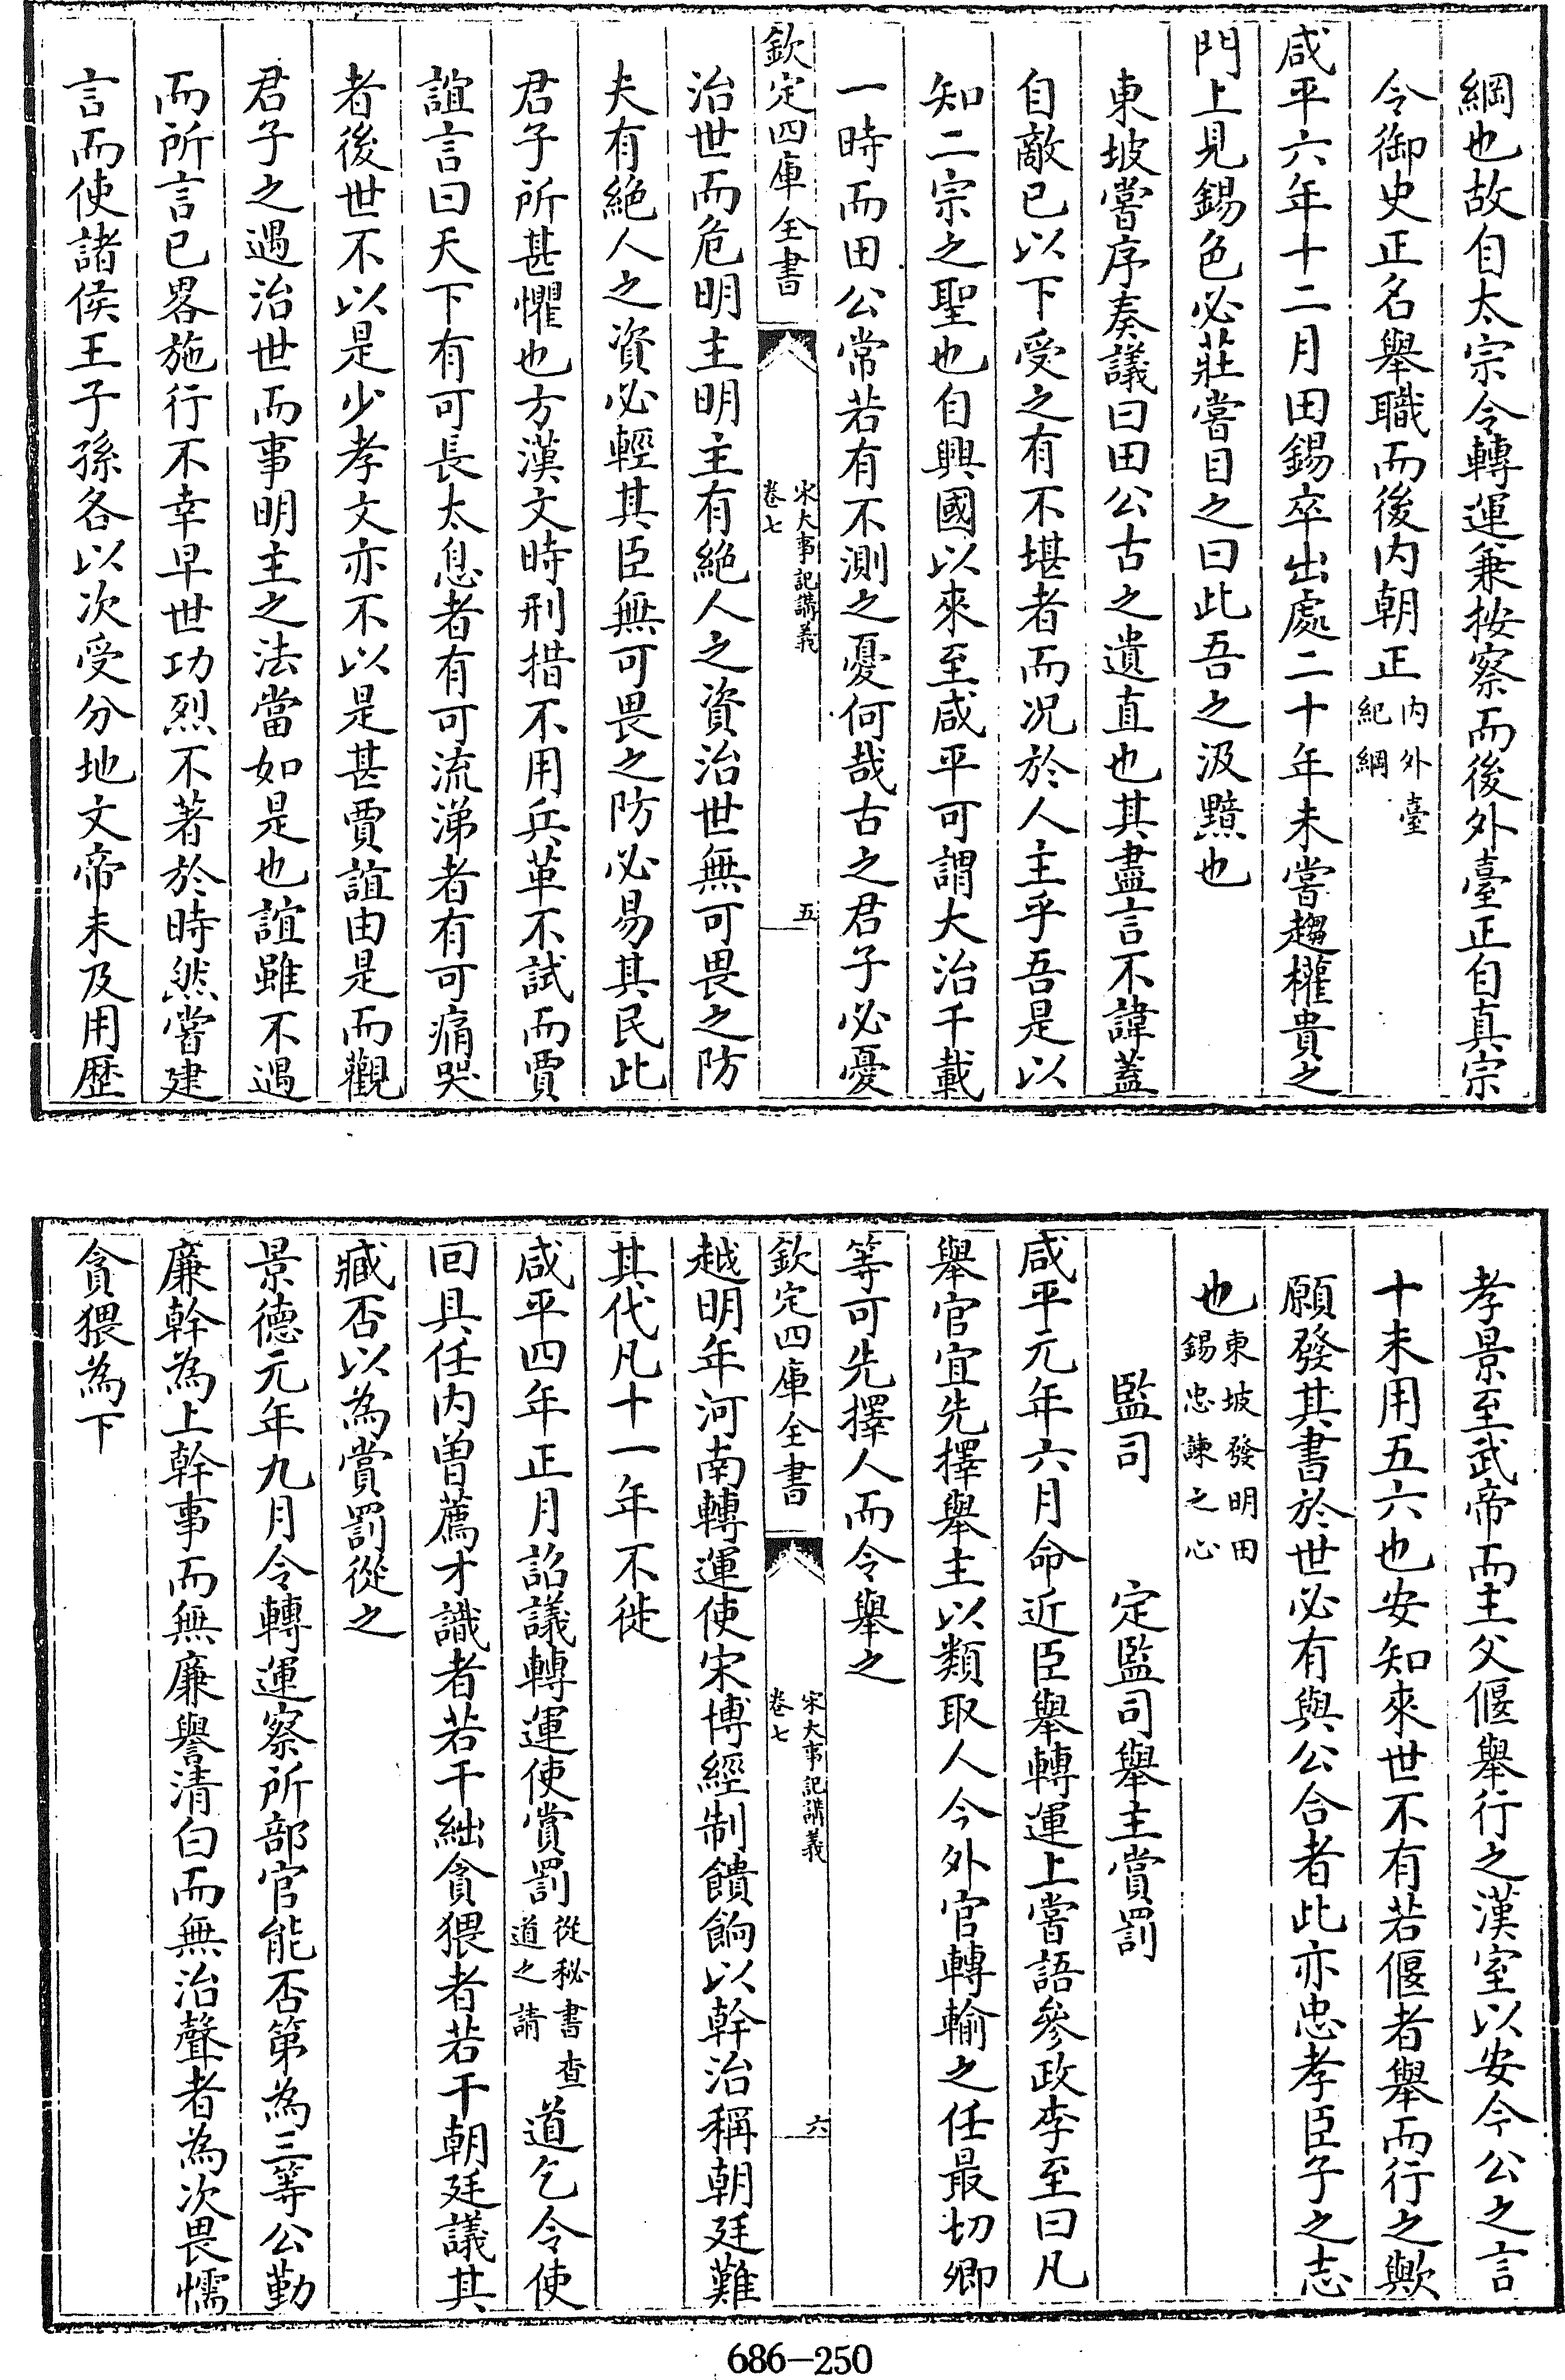 綱也故自太宗令轉運兼按察而後外臺正自真宗
令御史正名舉職而後内朝正内外臺紀綱
咸平六年十二月田錫卒出處二十年未嘗趨權貴之
門上見錫色必莊嘗目之曰此吾之汲黯也
東坡嘗序奏議曰田公古之遺直也其盡言不諱蓋
自敵已以下受之有不堪者而况於人主乎吾是以
知二宗之聖也自興國以來至咸平可謂大治千載
一時而田公常若有不測之憂何哉古之君子必憂
欽定四庫全書 宋大事記講義 卷七 五
治世而危明主明主有絶人之資治世無可畏之防
夫有絶人之資必輕其臣無可畏之防必易其民此
君子所甚懼也方漢文時刑措不用兵革不試而賈
誼言曰天下有可長太息者有可流涕者有可痛哭
者後世不以是少孝文亦不以是甚賈誼由是而觀
君子之遇治世而事明主之法當如是也誼雖不遇
而所言已畧施行不幸早世功烈不著於時然嘗建
言而使諸侯王子孫各以次受分地文帝未及用歴
孝景至武帝而主父偃舉行之漢室以安今公之言
十未用五六也安知來世不有若偃者舉而行之歟
願發其書於世必有與公合者此亦忠孝臣子之志
也東坡發明田錫忠諫之心
監司 定監司舉主賞罰
咸平元年六月命近臣舉轉運上嘗語參政李至曰凡
舉官宜先擇舉主以類取人今外官轉輸之任最切卿
等可先擇人而令舉之
欽定四庫全書 宋大事記講義 卷七 六
越明年河南轉運使宋博經制饋餉以幹治稱朝廷難
其代凡十一年不徙
咸平四年正月詔議轉運使賞罰從秘書查道之請道乞令使
回具任内曽薦才識者若干絀貪猥者若干朝廷議其
臧否以為賞罰從之
景德元年九月令轉運察所部官能否第為三等公勤
廉幹為上幹事而無廉譽清白而無治聲者為次畏懦
貪猥為下
686—250